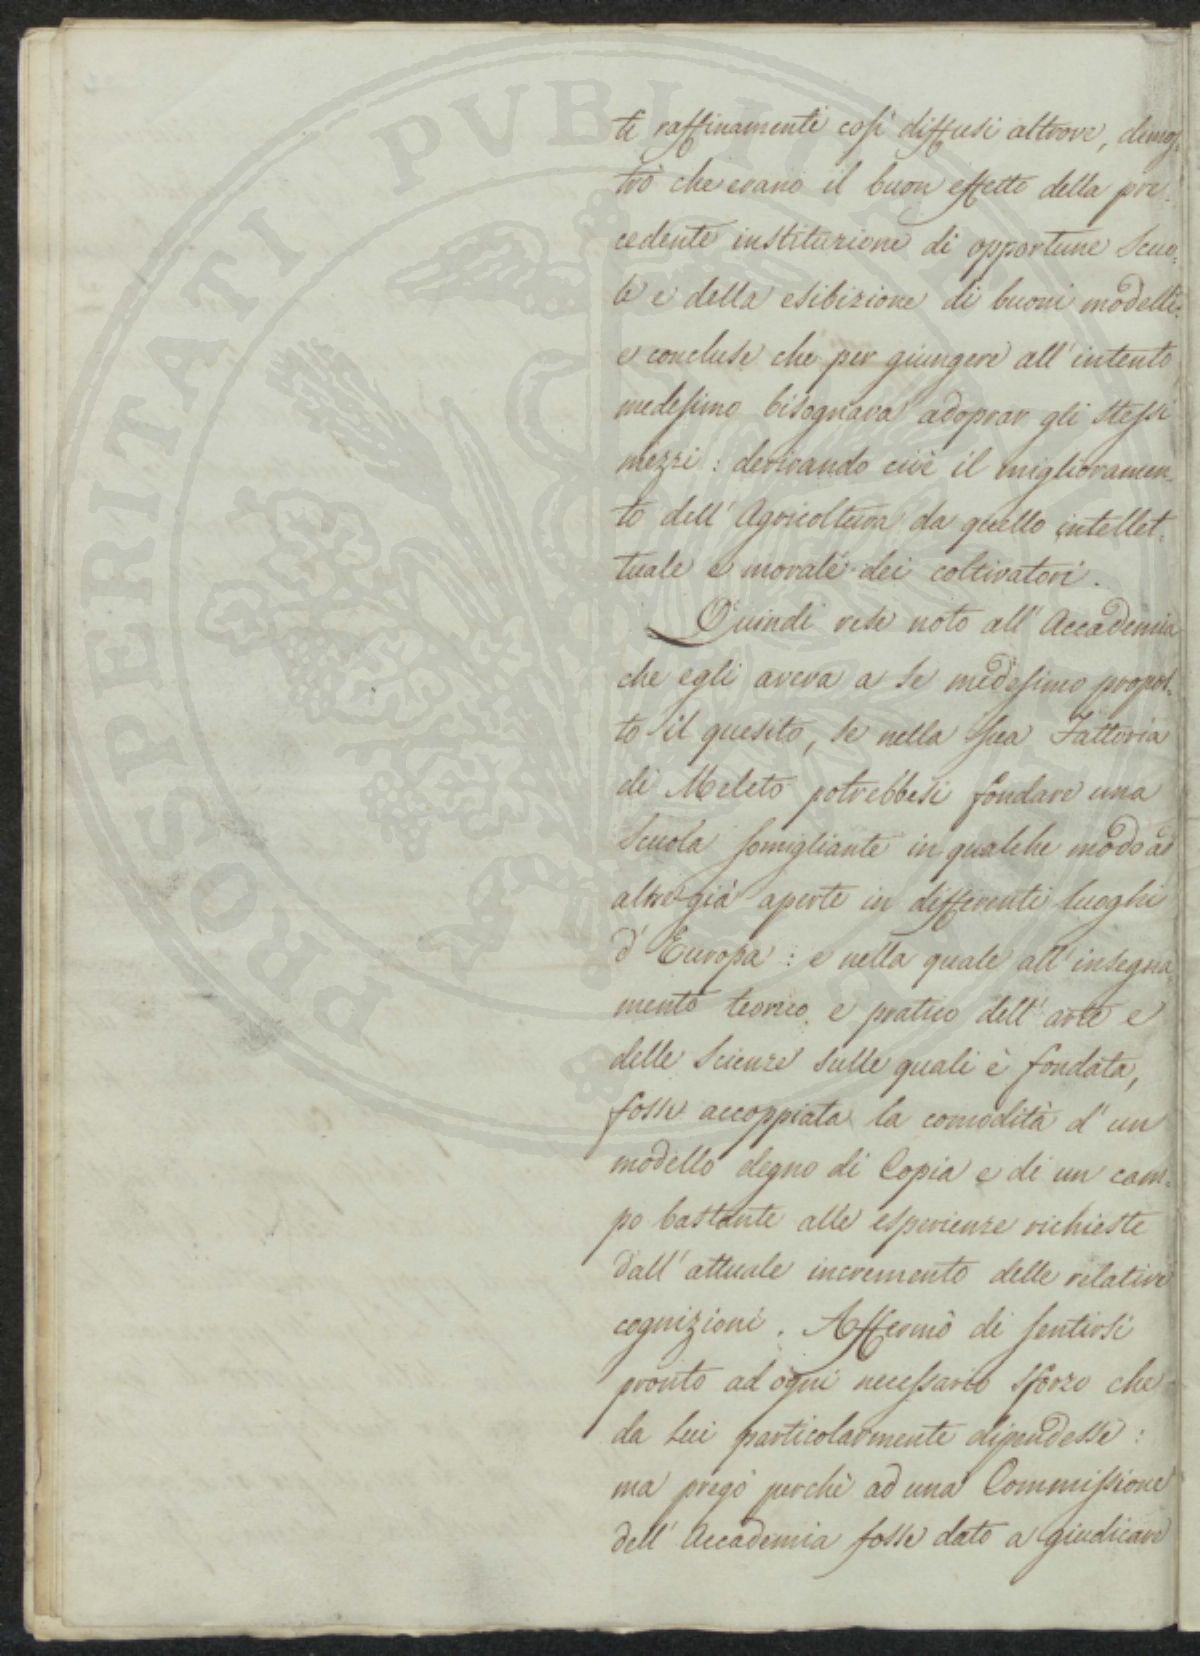 PROSPERITATI PVBLICAE
ti raffinamenti così diffusi altrove, dimos-
trò che erano il buon effetto della pre-
cedente instituzione di opportune Scuo-
le e della esibizione di buoni modelli:
e concluse che per giungere all' intento
medesimo bisognava adoprar gli stessi
mezzi: derivando cioè il miglioramen-
to dell' Agricoltura da quello intellet-
tuale e morale dei coltivatori.
Quindi rese noto all' Accademia
che egli aveva a se medesimo propos-
to il quesito, se nella sua Fattoria
di Meleto potrebbesi fondare una
Scuola somigliante in qualche modo ad
altre già aperte in differenti luoghi
d' Europa: e nella quale all' insegna-
mento teorico e pratico dell' arte e
delle Scienze sulle quali è fondata,
fosse accoppiata la comodità d' un
modello degno di Copia e di un cam-
po bastante alle esperienze richieste
dall' attuale incremento delle relative
cognizioni. Affermò di sentirsi
pronto ad ogni necessario sforzo che
da Lui particolarmente dipendesse:
ma pregò perchè ad una Commissione
dell' Accademia fosse dato a giudicare